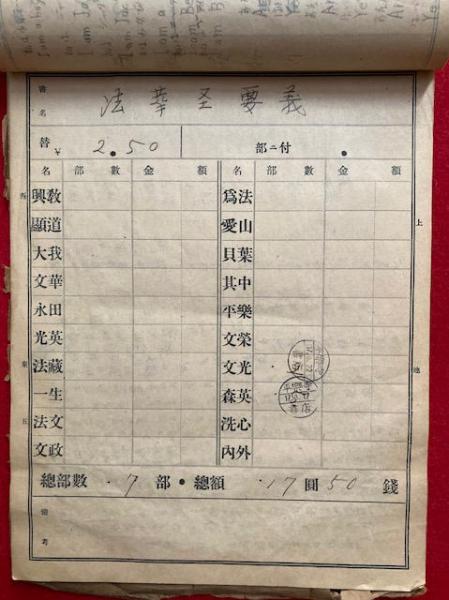 書名 法華圣要義
替 ¥ 2.50 部ニ付
名 部數 金額 名 部數 金額
興教 爲法
顯道 愛山
大我 貝葉
文華 其中
永田 平樂
光英 文榮
法藏 文光
一生 森英
法文 洗心
文政 內外
總部數 7 部 ・ 總額 17 圓 50 錢
備考